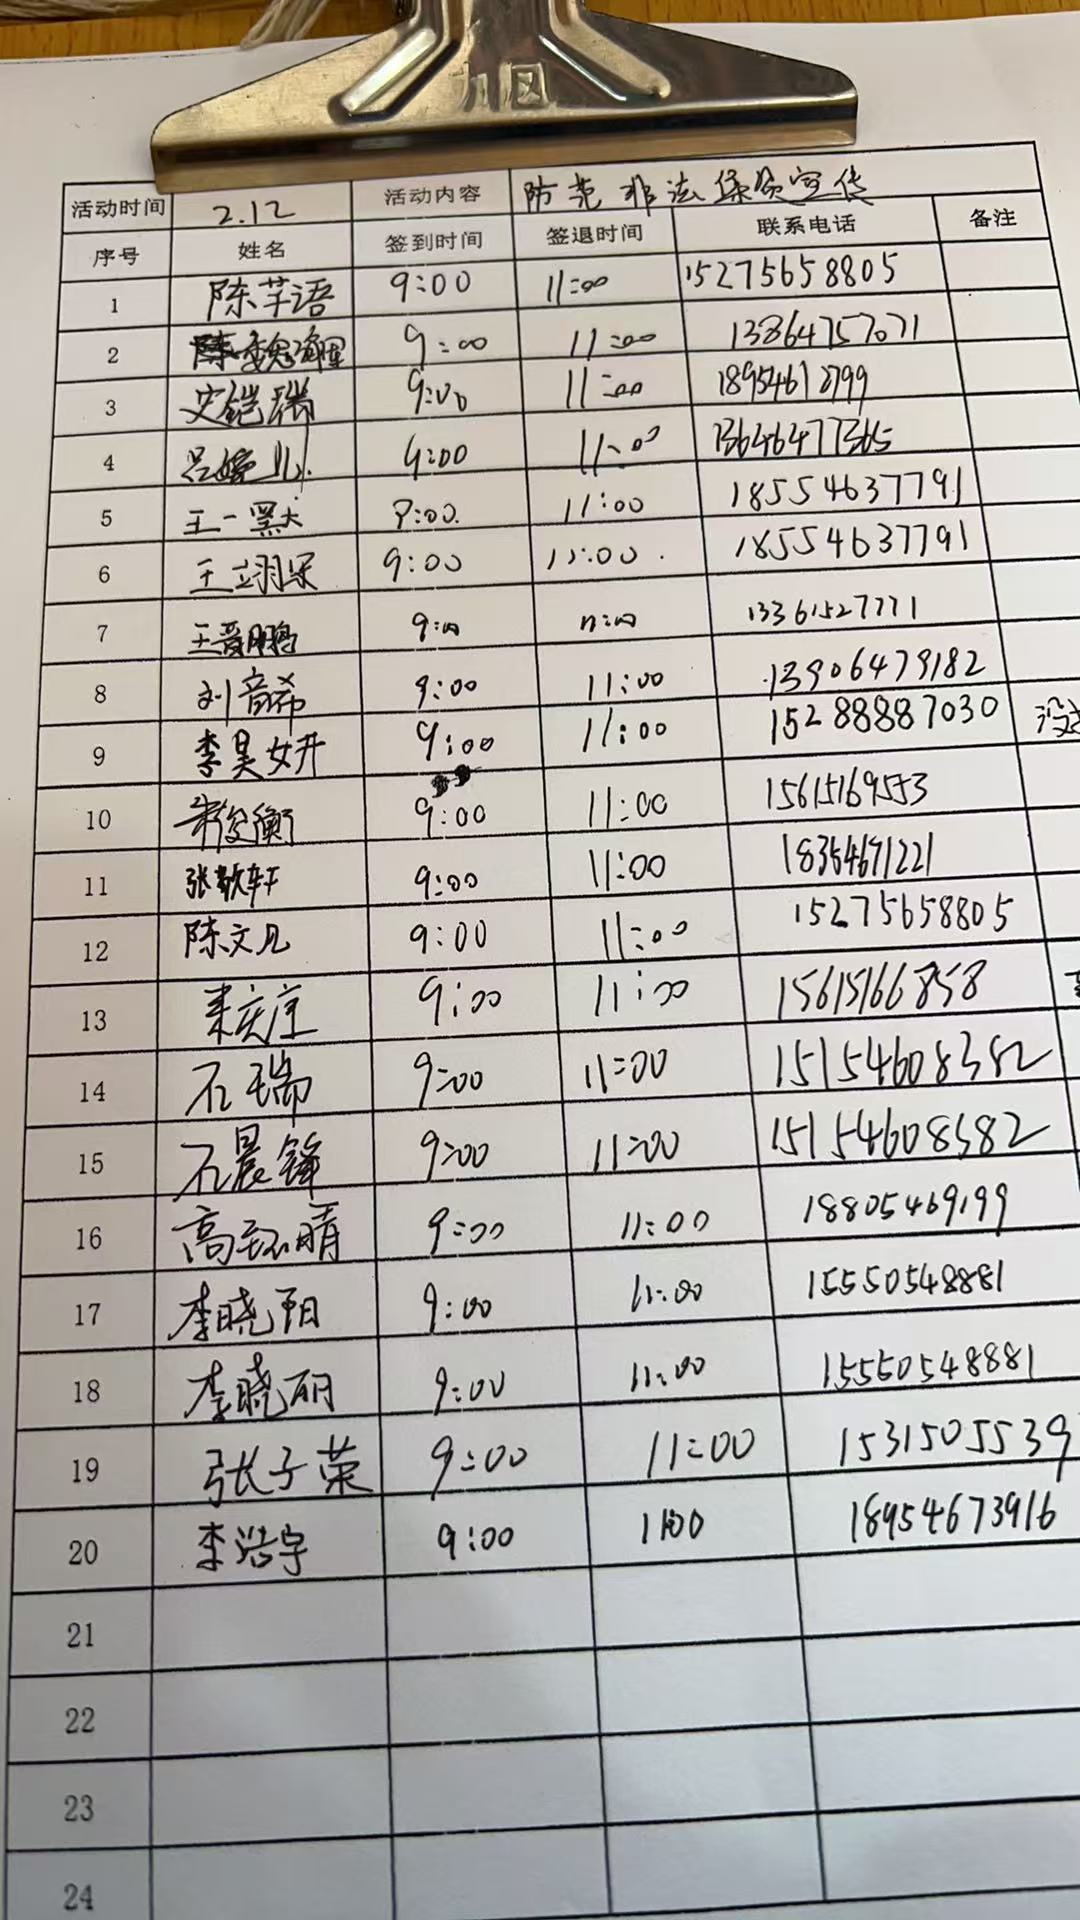 活动时间 2.12 活动内容 防范非法集资宣传
序号 姓名 签到时间 签退时间 联系电话 备注
1 陈芊语 9:00 11:00 15275658805
2 9:00 11:00 13864757071
3 安铠瑞 9:00 11:00 18954612799
4 9:00 11:00 13646477365
5 王一默 9:00 11:00 18554637791
6 王翊 9:00 11:00 18554637791
7 王晋鹏 9:00 11:00 13361527771
8 刘音希 9:00 11:00 13906479182
9 李昊妍 9:00 11:00 15288887030 没
10 俊衡 9:00 11:00 15615169553
11 张敬轩 9:00 11:00 18354671221
12 陈文 9:00 11:00 15275658805
13 9:00 11:00 15615166858
14 石瑞 9:00 11:00 15154608382
15 石晨锋 9:00 11:00 15154608382
16 高 晴 9:00 11:00 18805469199
17 李晓阳 9:00 11:00 15550548881
18 李晓丽 9:00 11:00 15550548881
19 张子荣 9:00 11:00 1531505539
20 李浩宇 9:00 1100 18954673916
21
22
23
24